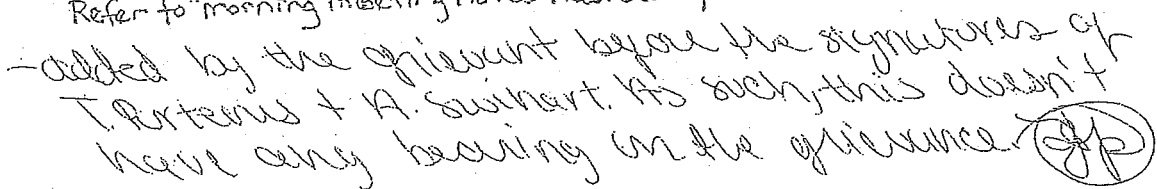 Refer to "morning meeting notes
- added by the grievant before the signatures of
T. Artemis + A. Swihart. As such, this doesn't
have any bearing on the grievance. jp